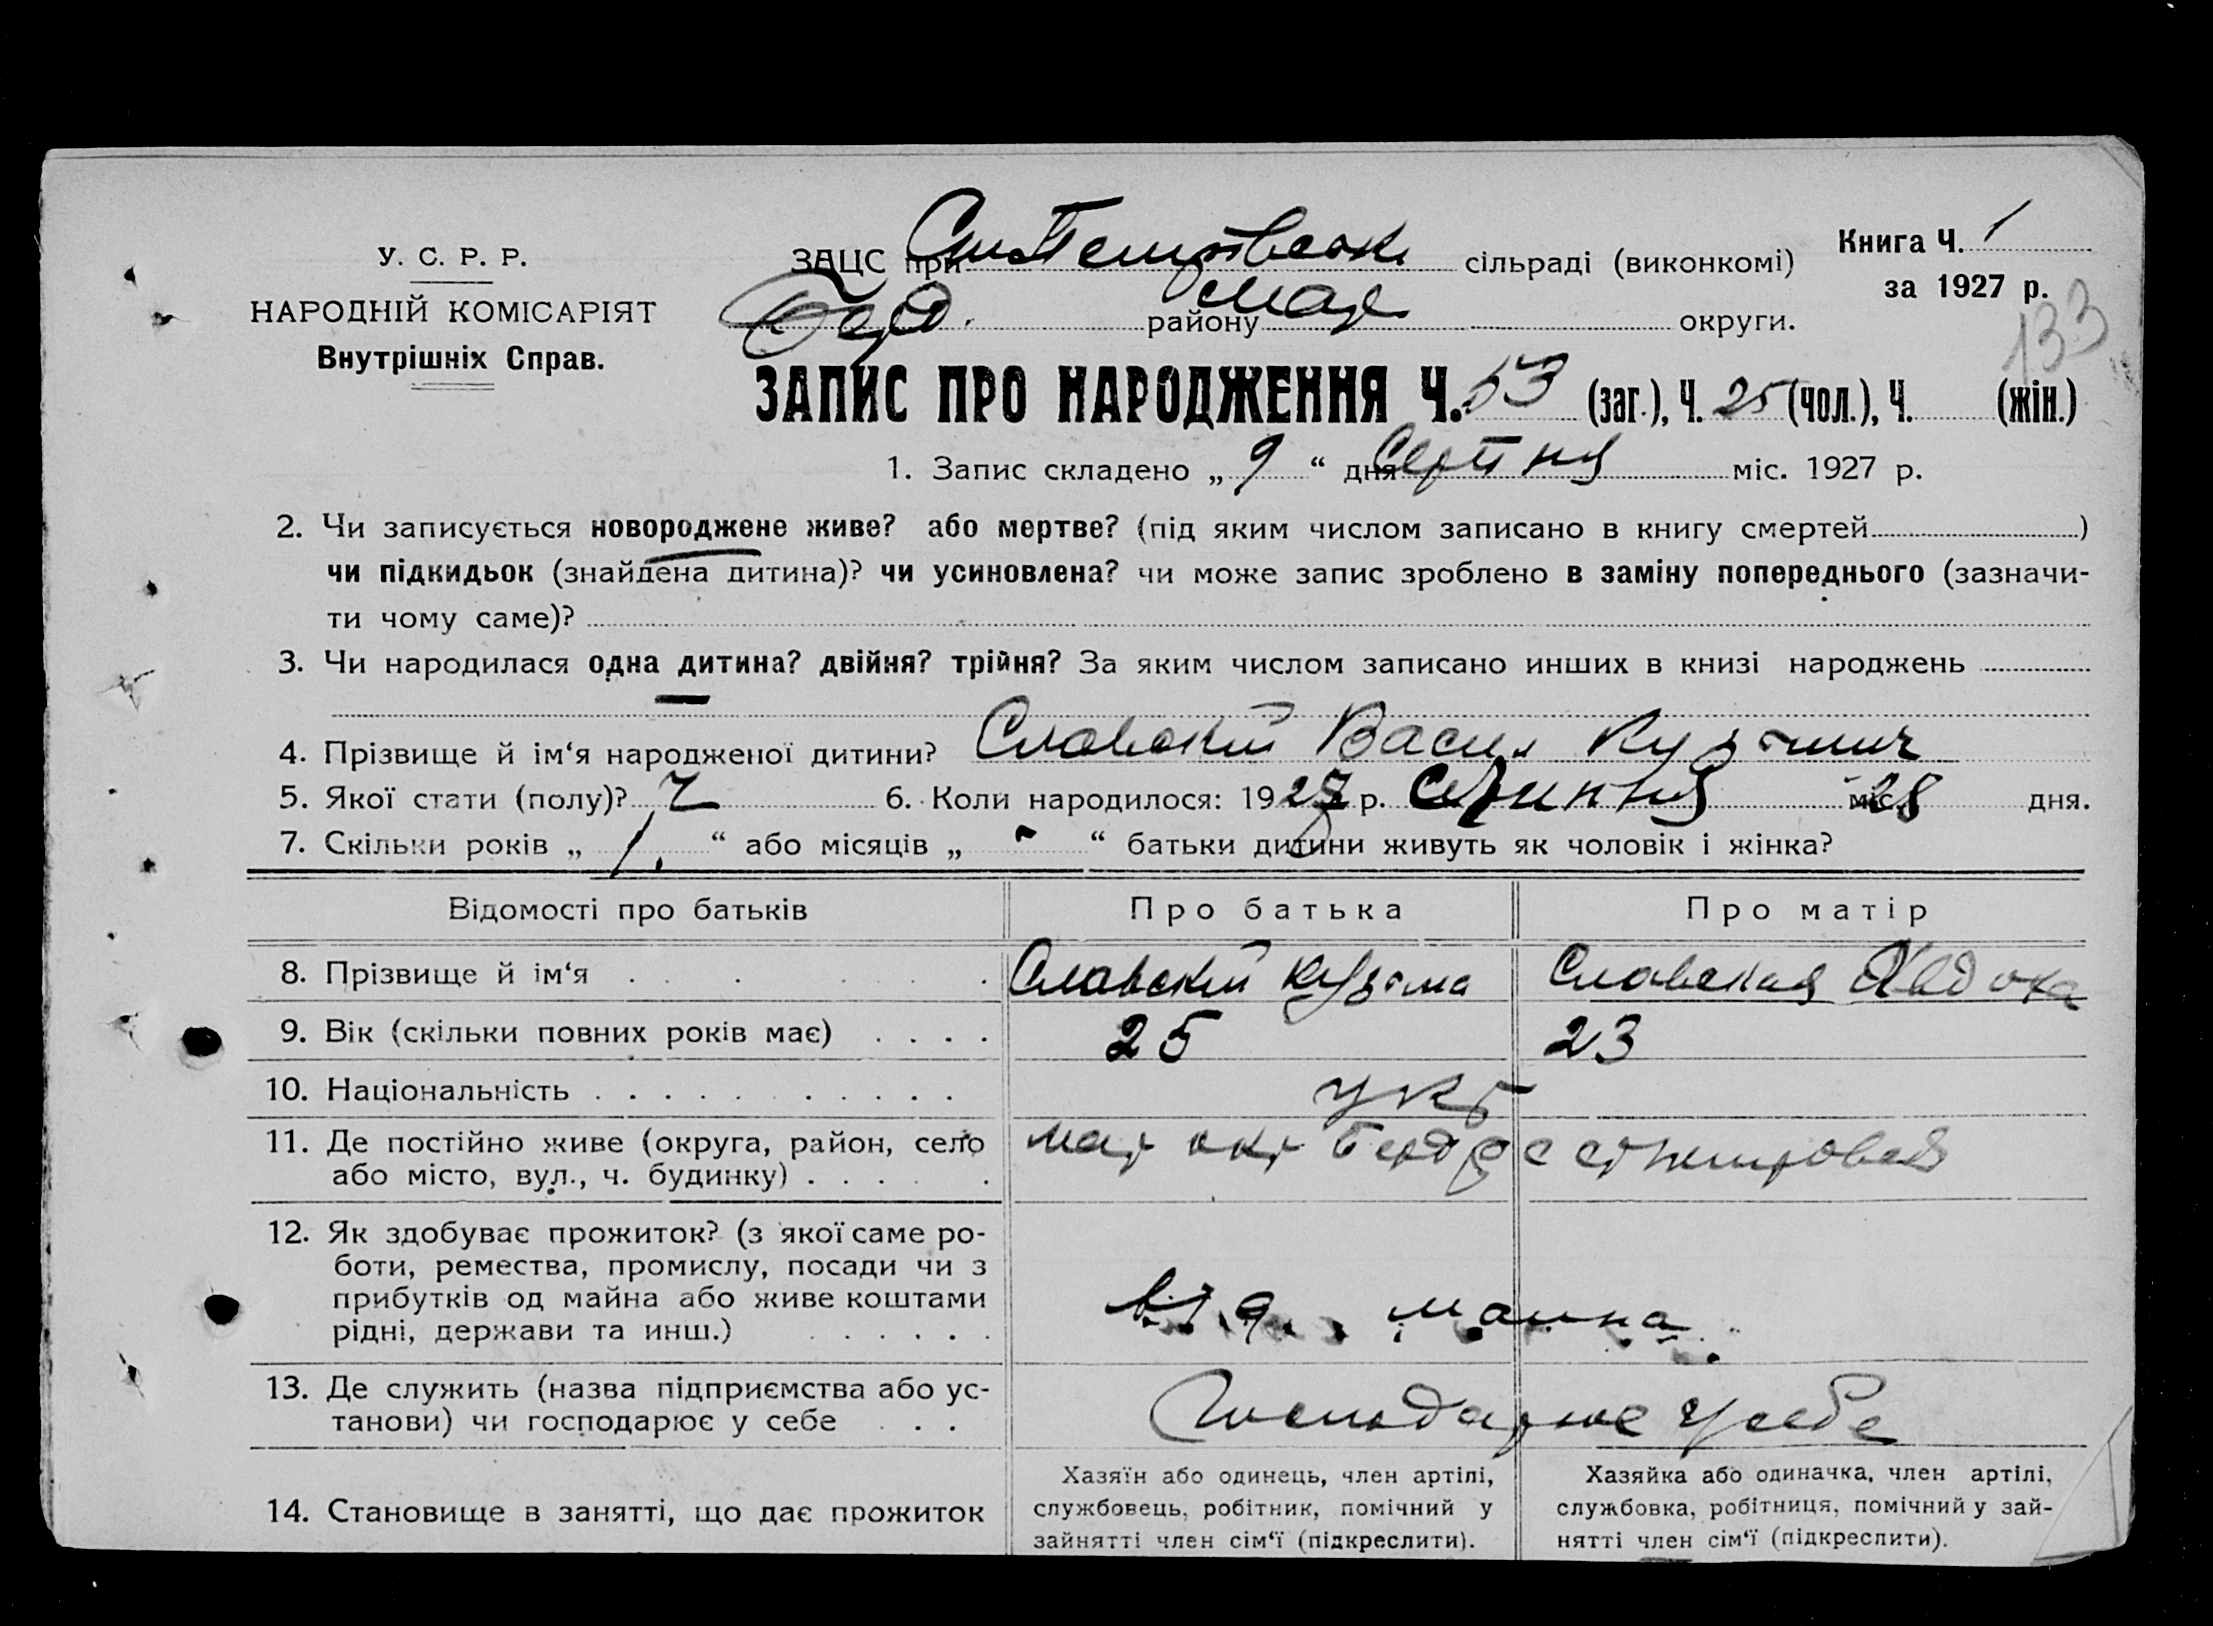 У. С. Р. Р.
НАРОДНІЙ КОМІСАРІЯТ
Внутрішніх Справ.
ЗАЦС при Ст Петрівськ. сільраді (виконкомі)
Берд. району Мар округи.
Книга Ч. 1
за 1927 р.
133
ЗАПИС ПРО НАРОДЖЕННЯ Ч. 53 (заг.), Ч. 25 (чол.), Ч. (жін.)
1. Запис складено „ 9 “ дня Серпня міс. 1927 р.
2. Чи записується новороджене живе? або мертве? (під яким числом записано в книгу смертей )
чи підкидьок (знайдена дитина)? чи усиновлена? чи може запис зроблено в заміну попереднього (зазначи-
ти чому саме)?
3. Чи народилася одна дитина? двійня? трійня? За яким числом записано инших в книзі народжень
4. Прізвище й ім‘я народженої дитини? Славский Васил Кузьмич
5. Якої стати (полу)? Ч 6. Коли народилося: 1927 р. міс. 28 дня.
7. Скільки років „ 1. “ або місяців „ - “ батьки дитини живуть як чоловік і жінка?
Відомості про батьків Про батька Про матір
8. Прізвище й ім‘я Славский Кузьма Славская Явдоха
9. Вік (скільки повних років має) 25 23
10. Національність укр
11. Де постійно живе (округа, район, село
або місто, вул., ч. будинку) Мар окр Берд р с
12. Як здобуває прожиток? (з якої саме ро-
боти, ремества, промислу, посади чи з
прибутків од майна або живе коштами
рідні, держави та инш.) від маина
13. Де служить (назва підприємства або ус-
танови) чи господарює у себе Господарює у себе
14. Становище в занятті, що дає прожиток
Хазяїн або одинець, член артілі,
службовець, робітник, помічний у
зайнятті член сім‘ї (підкреслити).
Хазяйка або одиначка, член артілі,
службовка, робітниця, помічний у зай-
нятті член сім‘ї (підкреслити).